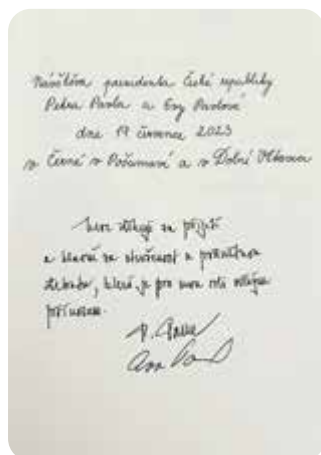 Návštěva prezidenta České republiky
Petra Pavla a Evy Pavlové
dne 19 července 2023
v Černé v Pošumaví a v Dolní Vltavici
děkuji za přijetí
a hlavně za otevřenost a
debatu, která je pro
přínosem.
P. Pavel